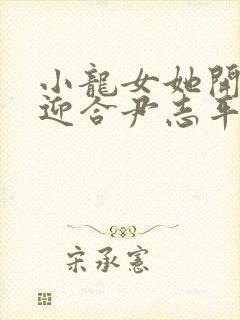 小龍女她開
迎合尹志平
宋承憲